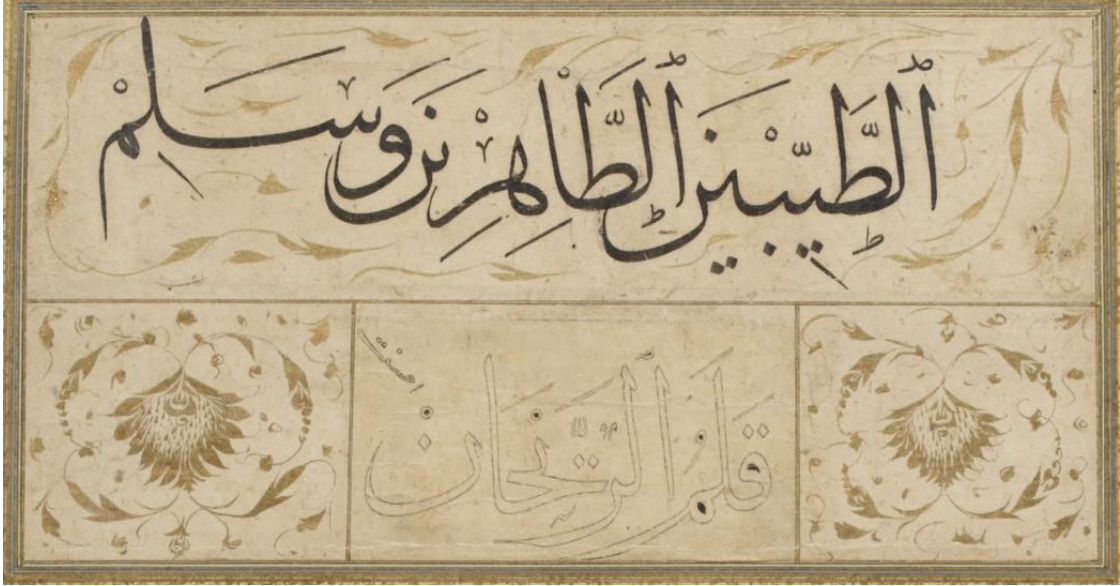 ٱلطَّيِّبِينَ ٱلطَّاهِرِينَ وَسَلِّمْ
قَلَمُ الرَّيْحَان